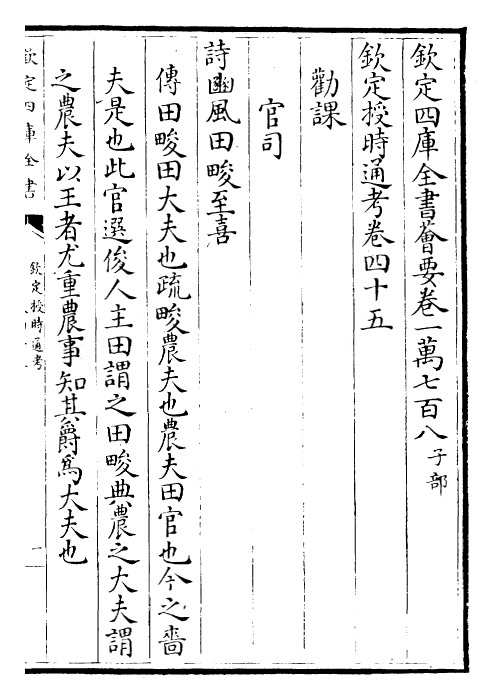 欽定四庫全書薈要卷一萬七百八子部
欽定授時通考卷四十五
勸課
官司
詩豳風田畯至喜
傳田畯田大夫也疏畯農夫也農夫田官也今之嗇
夫是也此官選俊人主田謂之田畯典農之大夫謂
之農夫以王者尤重農事知其爵為大夫也
欽定四庫全書
欽定授時通考
一